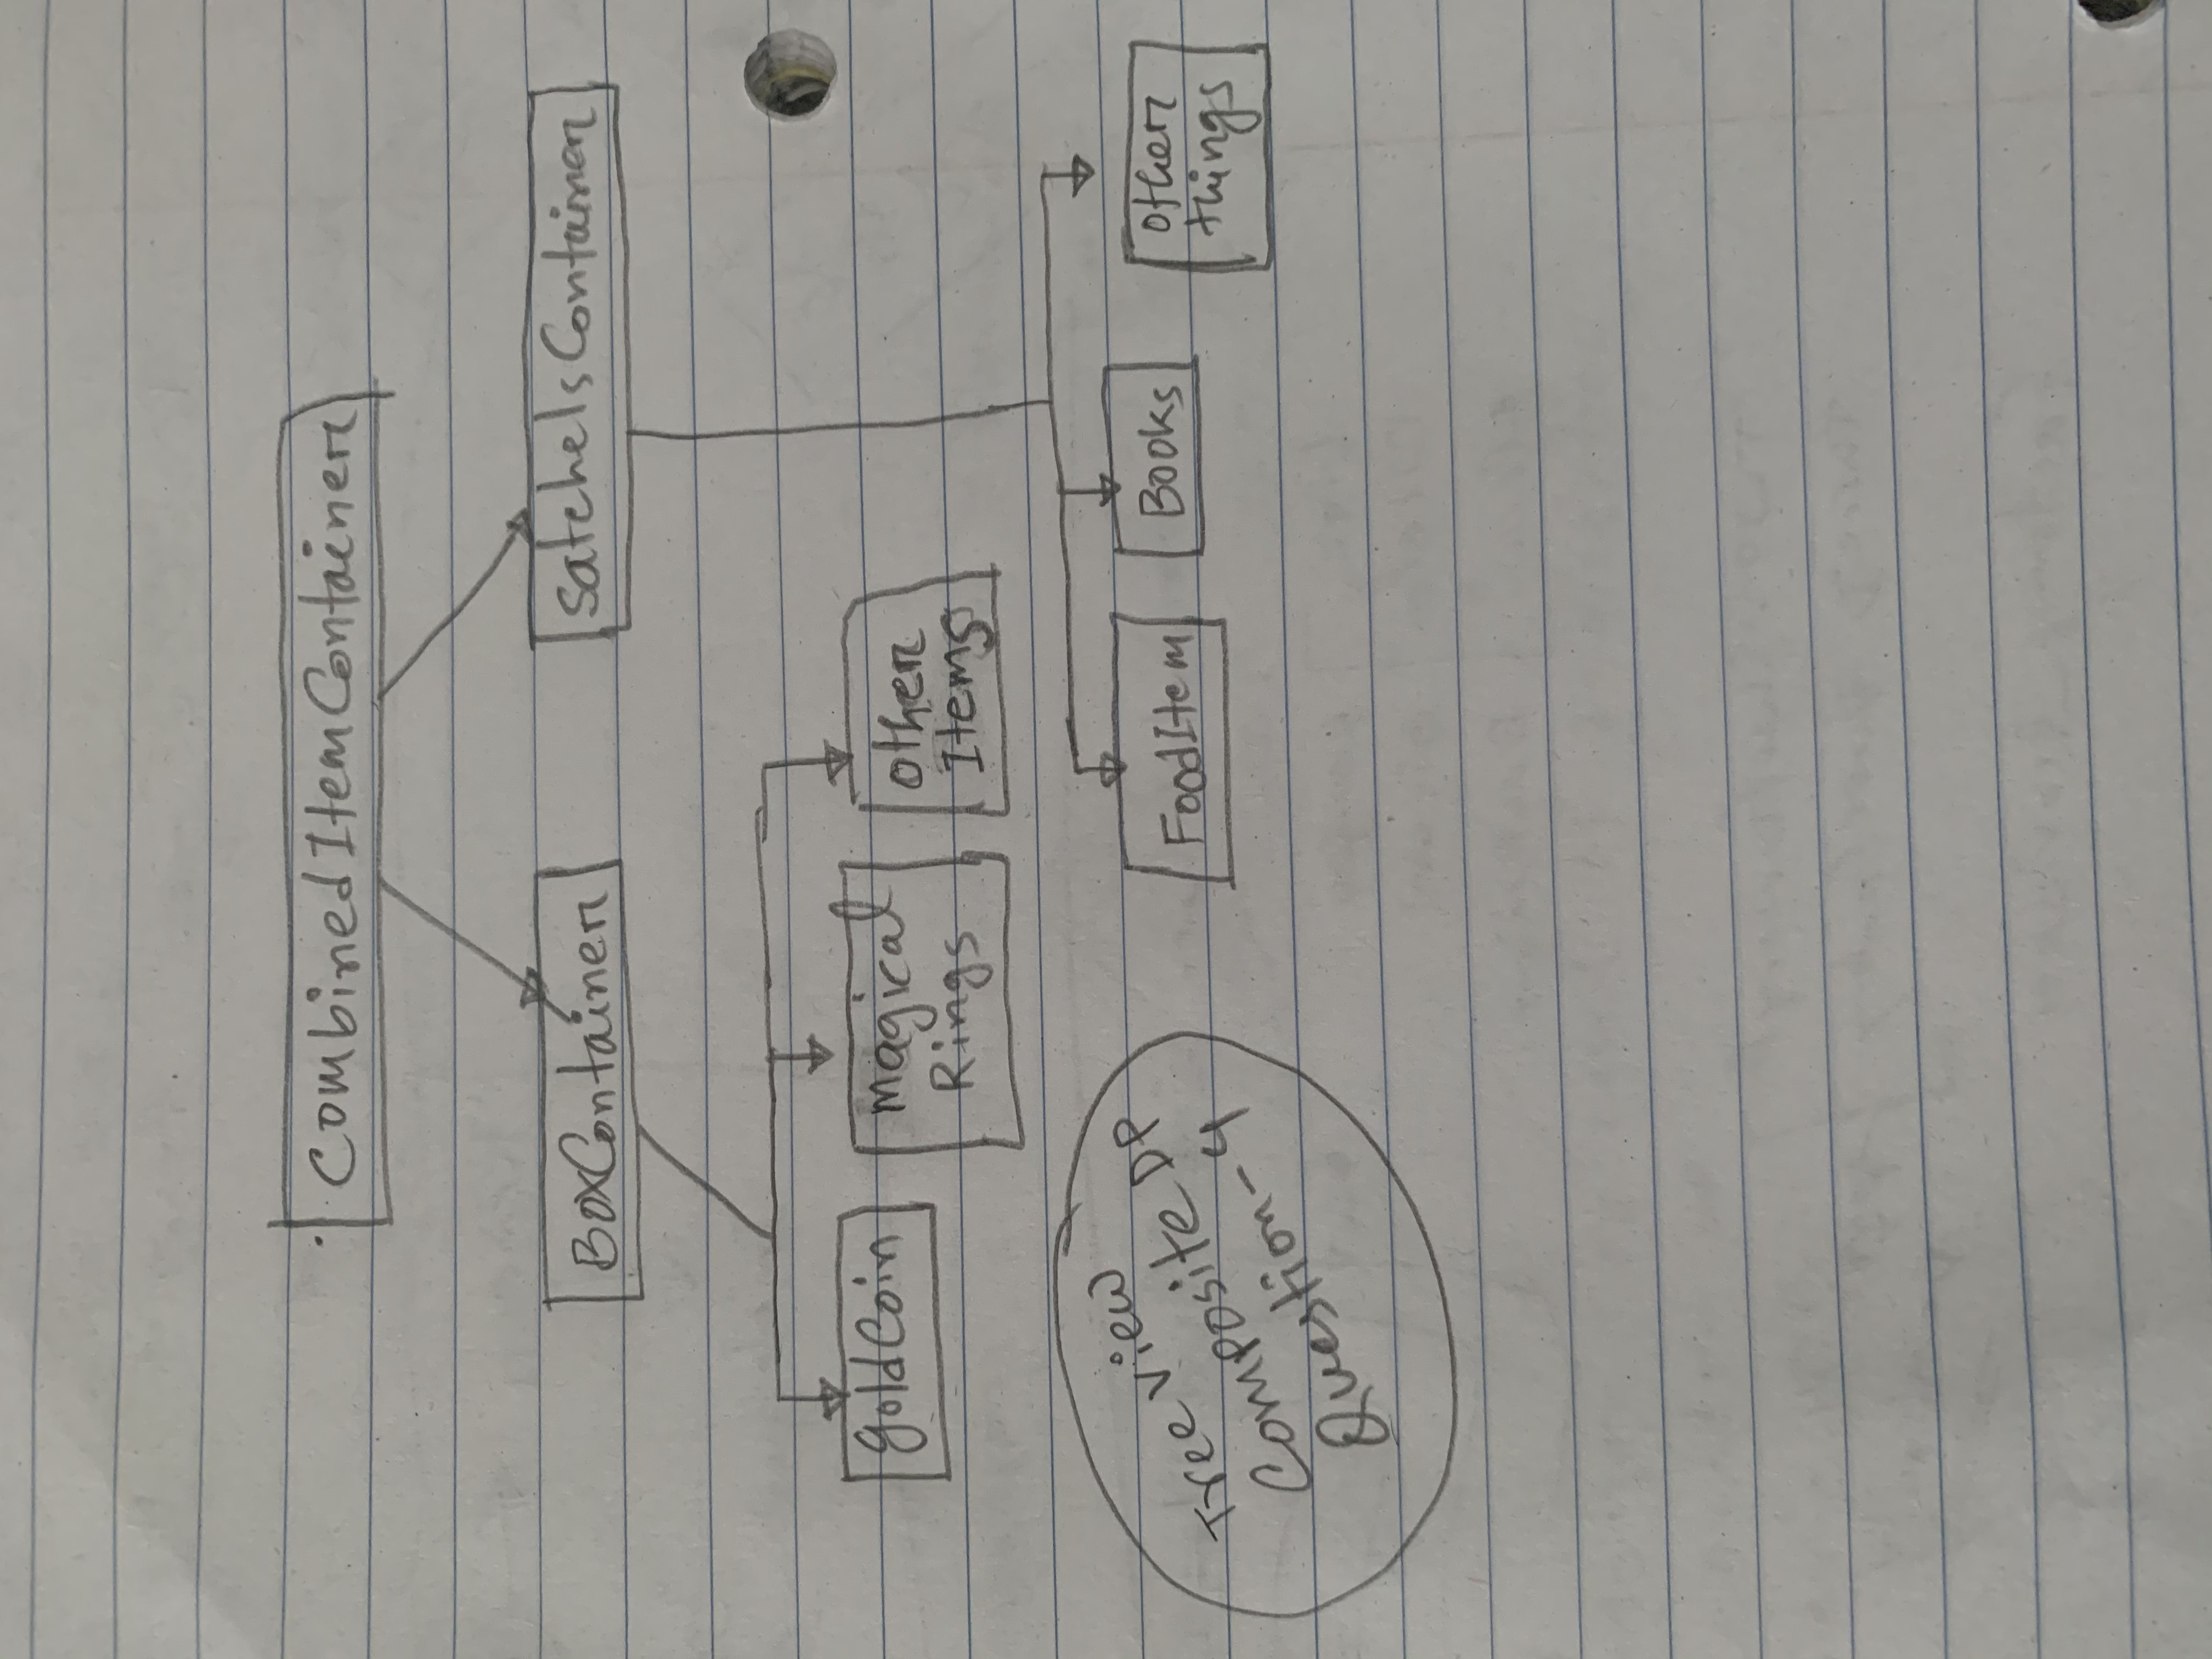 CombinedItemContainer
BoxContainer
SatchelsContainer
goldCoin
magical
Rings
other
Items
FoodItem
Books
other
things
Tree view
Composite DP
Question-4